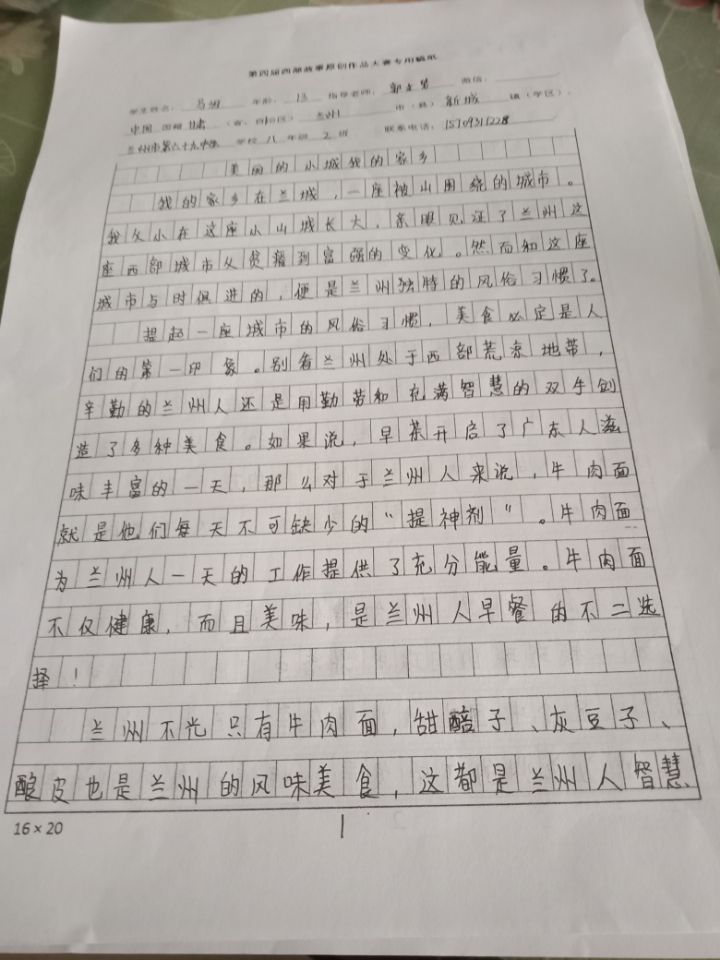 第四届西部故事原创作品大赛专用稿纸
学生姓名： 马 年龄： 13 指导老师： 郭 微信：
中国 国籍 甘肃 （省、自治区） 兰州 市（县） 新城 镇（学区）、
兰州市第六十九中学 学校 八 年级 2 班 联系电话： 15709311228
美丽的小城我的家乡
我的家乡在兰城，一座被山围绕的城市。
我从小在这座小山城长大，亲眼见证了兰州这
座西部城市从贫瘠到富强的变化。然而和这座
城市与时俱进的，便是兰州独特的风俗习惯了。
提起一座城市的风俗习惯，美食必定是人
们的第一印象。别看兰州处于西部荒凉地带，
辛勤的兰州人还是用勤劳和充满智慧的双手创
造了多种美食。如果说，早茶开启了广东人滋
味丰富的一天，那么对于兰州人来说，牛肉面
就是他们每天不可缺少的“提神剂”。牛肉面
为兰州人一天的工作提供了充分能量。牛肉面
不仅健康，而且美味，是兰州人早餐的不二选
择！
兰州不光只有牛肉面，甜醅子、灰豆子、
酿皮也是兰州的风味美食，这都是兰州人智慧
16×20
1